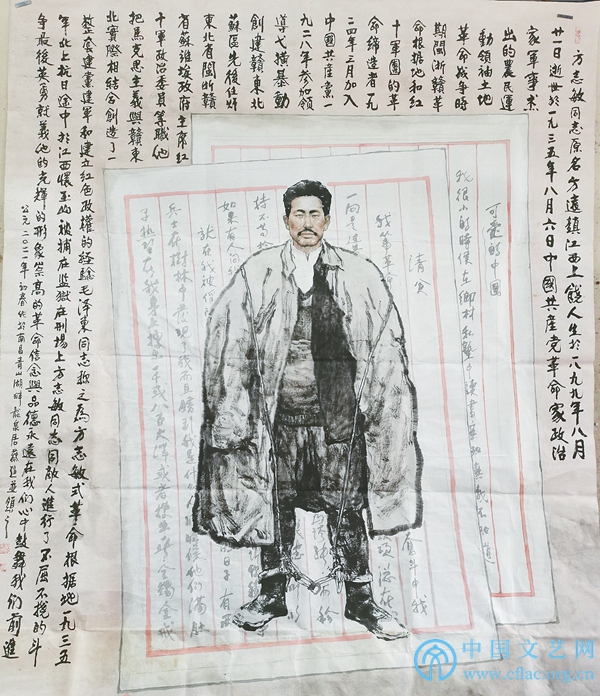 方志敏同志原名方遠鎮江西上饒人生於一八九九年八月
廿一日逝世於一九三五年八月六日中國共產党革命家政治
家軍事杰
出的農民運
動領袖土地
革命戰爭時
期閩浙贛革
命根據地和紅
十軍團的革
命締造者一九
二四年三月加入
中國共產党一
九二八年參加領
導弋橫暴動
創建贛東北
蘇區先後任
東北省閩浙贛
省蘇維埃政府主席紅
十軍政治委員等職他
把馬克思主義與贛東
北實際相結合創造了一
整套建黨建軍和建立紅色政權的經驗毛澤東同志称之為方志敏式革命根據地一九三五
年北上抗日途中於江西懷玉山被捕在監獄在刑場上方志敏同志同敵人進行了不屈不撓的斗
爭最後英勇就義他的光輝的形象崇高的革命信念與品德永遠在我們心中鼓舞我們前進
公元二〇二一年初春作於南昌青山湖畔
可愛的中國
我很小的時候在鄉村私塾中讀書
清貧
我從事革命
一向是過
如果有人問
就在我被俘
中国文艺网
www.cflac.org.cn